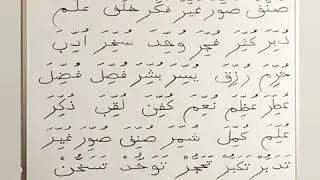 صَنَّفَ صَوَّرَ غَيَّرَ فَكَّرَ خَلَّقَ عَلَّمَ
دُبِّرَ كُثِّرَ فُجِّرَ وُحِّدَ سُخِّرَ اُدِّبَ
حُرِّمَ رُزِّقَ يُسِّرَ بُشِّرَ فُصِّلَ فُضِّلَ
عُطِّرَ عُظِّمَ نُعِّمَ كُفِّنَ لُقِّبَ ذُكِّرَ
عُلِّمَ كُمِّلَ شُمِّرَ صُنِّفَ صُوِّرَ غُيِّرَ
تَدَبُّرْ تَكَبُّرْ تَحَجُّرْ تَوَحُّدْ تَسَخُّنْ